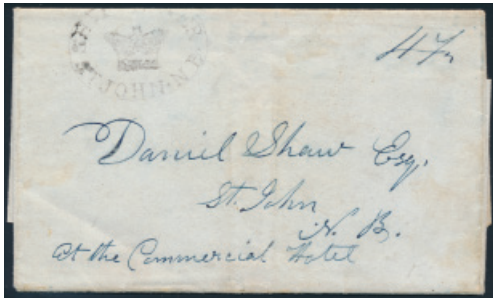 ST JOHN N.B
47
Daniel Shaw Esq.
St. John
N. B.
at the Commercial Hotel